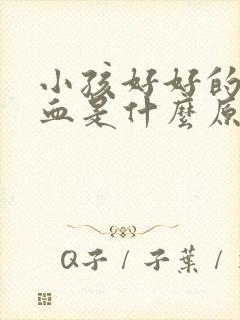 小孩好好的
血是什麼原
Q子 / 子葉 /